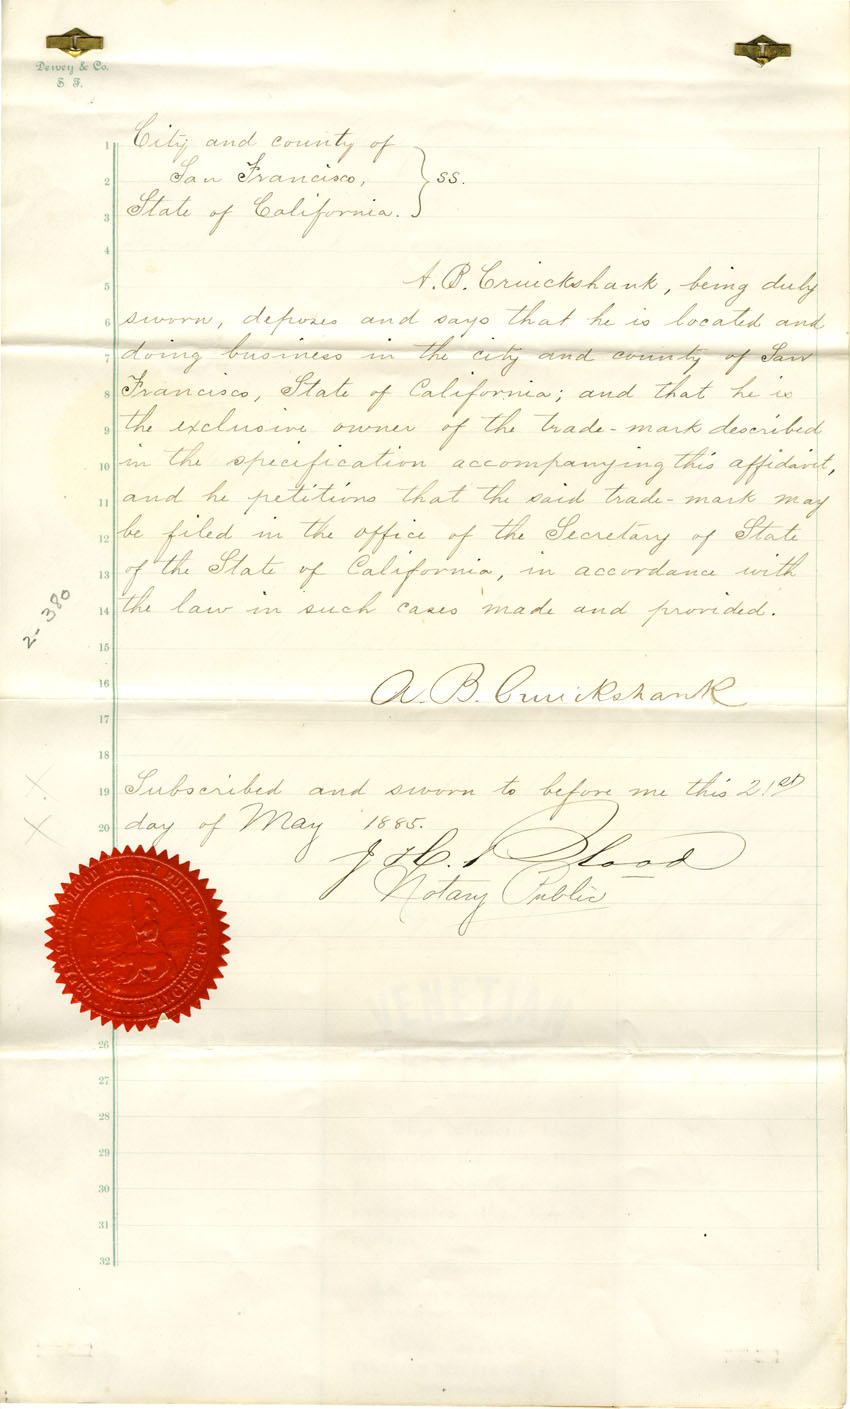 Dewey & Co.
S. F.
1 City and county of
2 San Francisco, } ss.
3 State of California.
4
5 A. B. Cruickshank, being duly
6 sworn, deposes and says that he is located and
7 doing business in the city and county of San
8 Francisco, State of California; and that he is
9 the exclusive owner of the trade-mark described
10 in the specification accompanying this affidavit,
11 and he petitions that the said trade-mark may
12 be filed in the office of the Secretary of State
13 of the State of California, in accordance with
14 the law in such cases made and provided.
2-380
15
16 A. B. Cruickshank
17
18
19 Subscribed and sworn to before me this 21st
20 day of May 1885.
J. H. Blood
Notary Public
NOTARY PUBLIC
VENETIAN
26
27
28
29
30
31
32